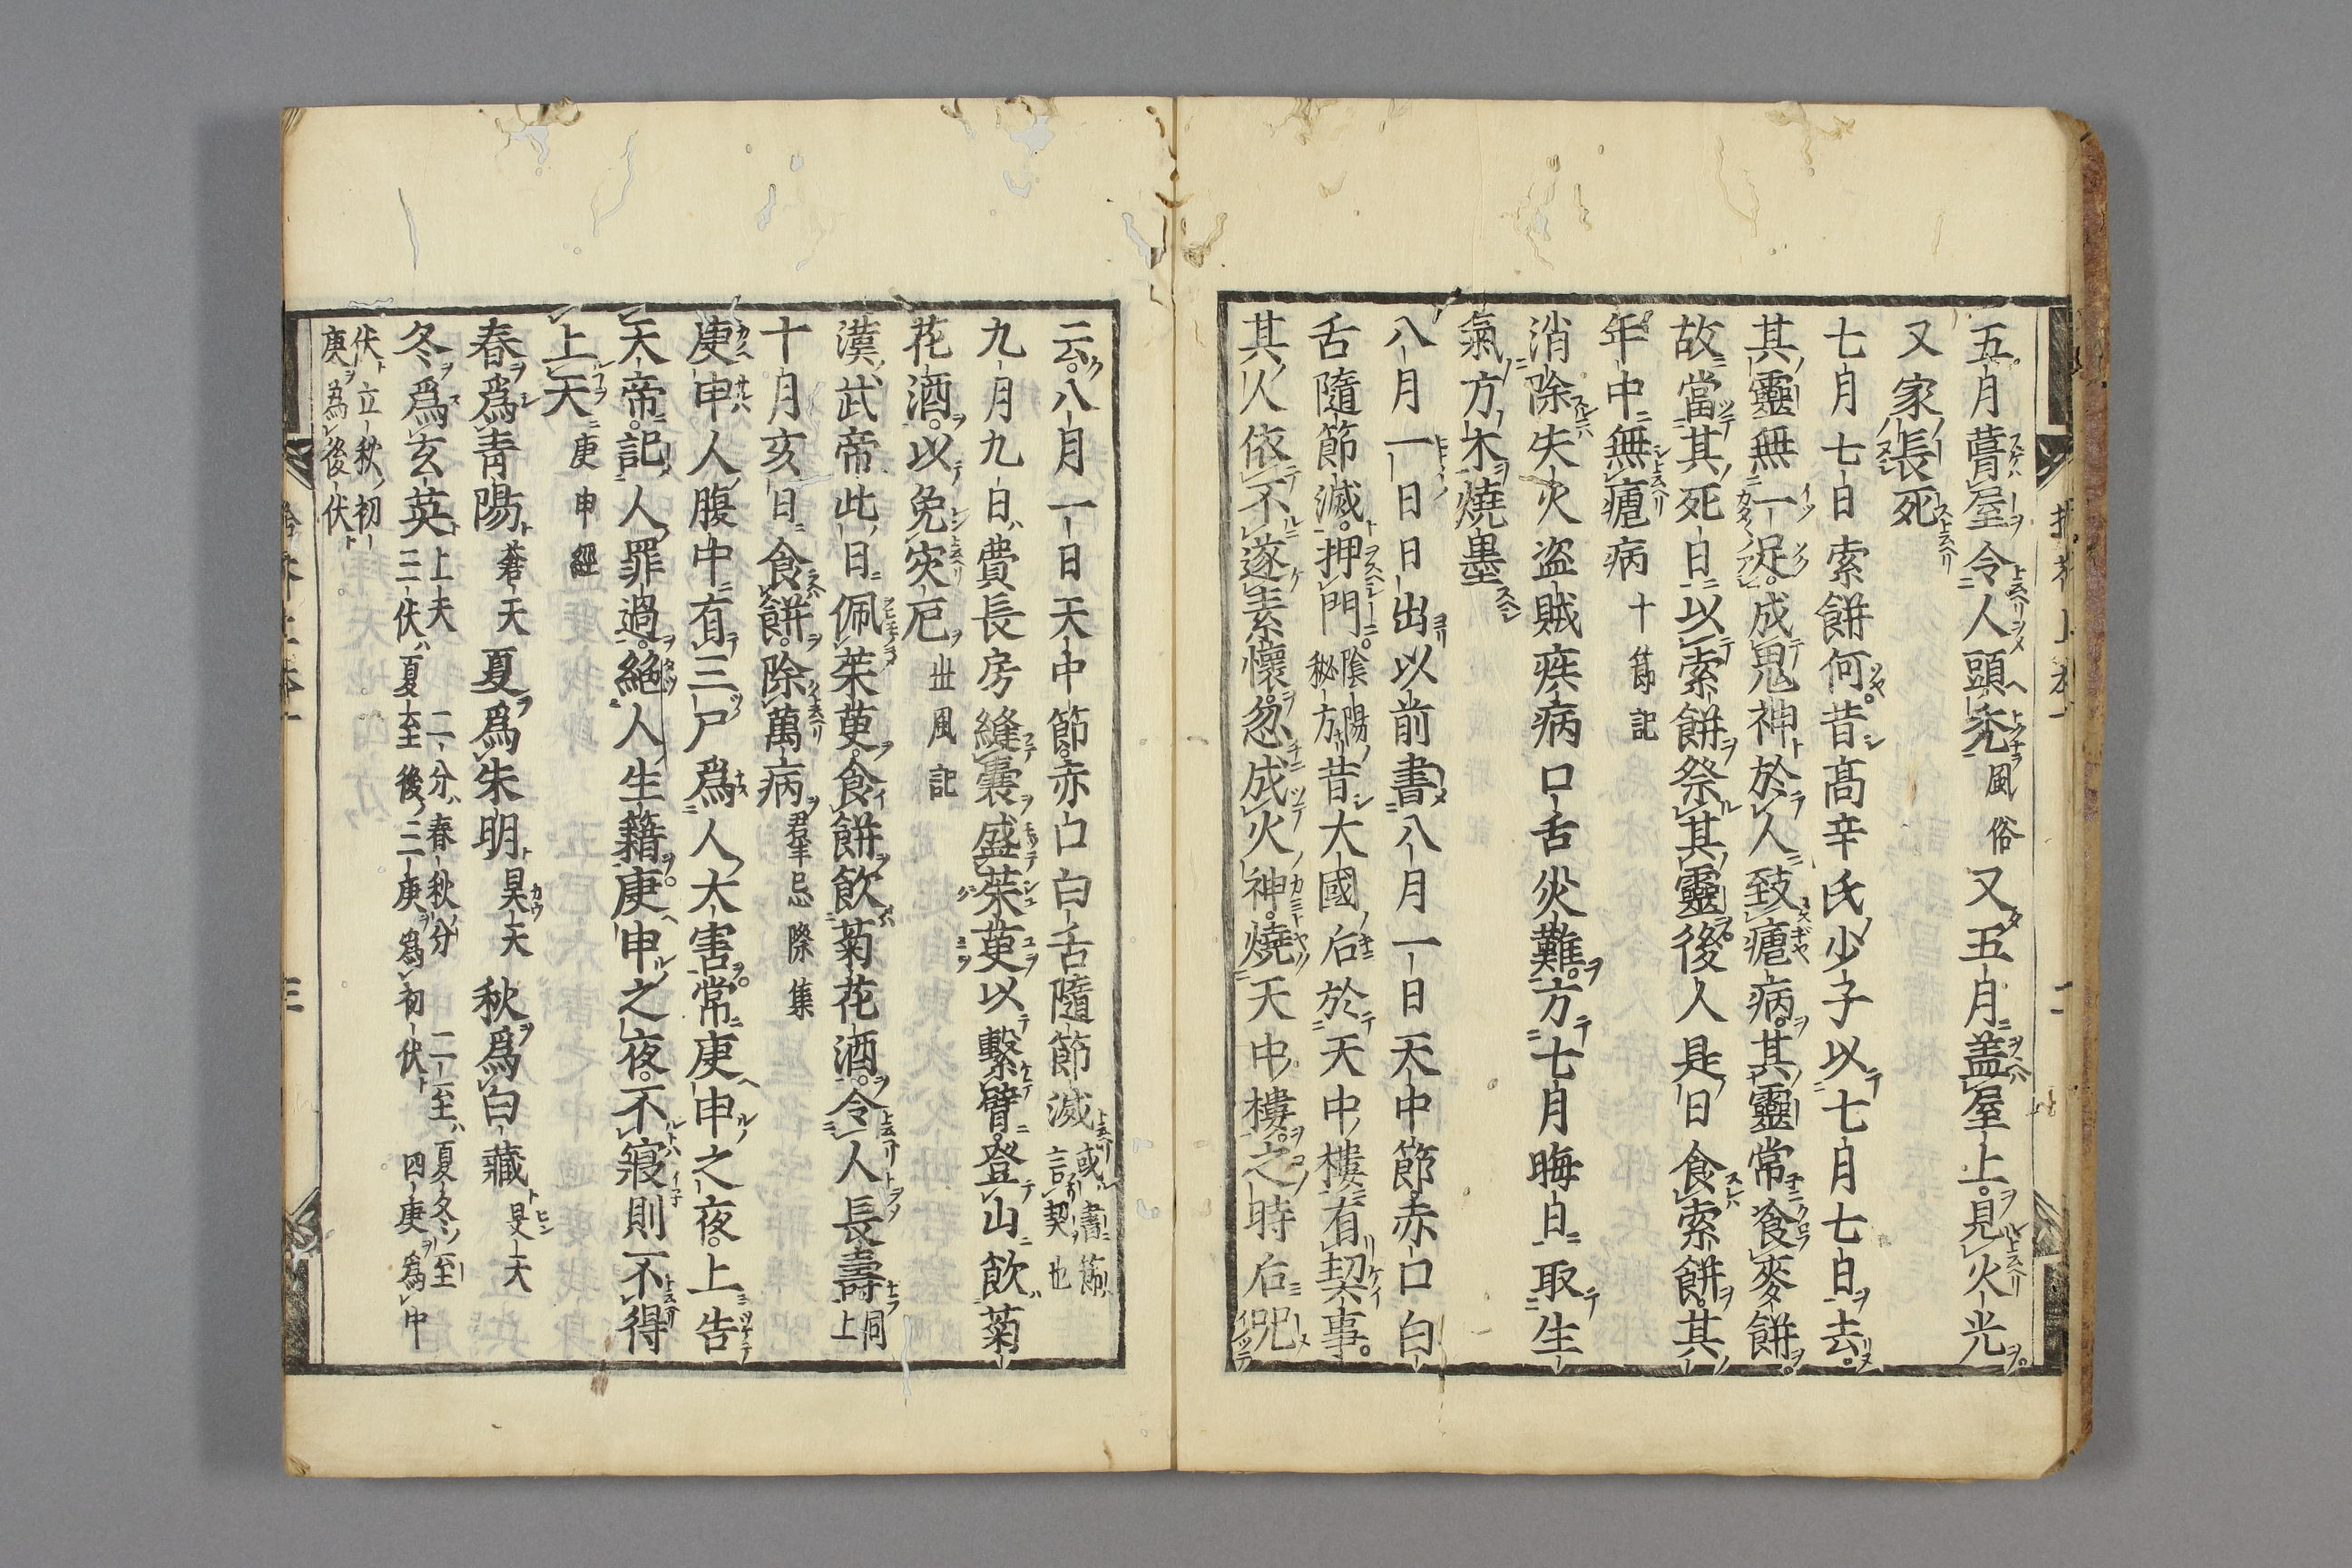 五月蓐屋令人頭禿風俗又五月蓋屋上見火光
又家長死
七月七日索餅何昔高辛氏少子以七月七日去
其靈無一足成鬼神於人致瘧病其靈常飡麥餅
故當其死日以索餅祭其靈後人是日食索餅其
年中無瘧病十節記
消除失火盜賊疾病口舌災難方七月晦日取生
氣方木燒墨
八月一日日出以前書八月一日天中節赤口白
舌隨節滅押門陰陽秘方昔大國后於天中樓有契事
其人依不遂素懷忽成火神燒天中樓之時后咒
云八月一日天中節赤口白舌隨節滅或書節言契也
九月九日費長房縫囊盛茱萸以繫臂登山飲菊
花酒以免灾厄世風記
漢武帝此日佩茱萸食餅飲菊花酒令人長壽同上
十月亥日食餅除萬病君羊忌際集
庚申人腹中有三尸爲人大害常庚申之夜上告
天帝記人罪過絕人生籍庚申之夜不寢則不得
上天庚申經
春爲青陽蒼天 夏爲朱明昊天 秋爲白藏旻天
冬爲玄英上天 二分春秋分 二至夏冬至 三伏夏至後三庚爲初伏 四庚爲中
伏立秋初庚為後伏